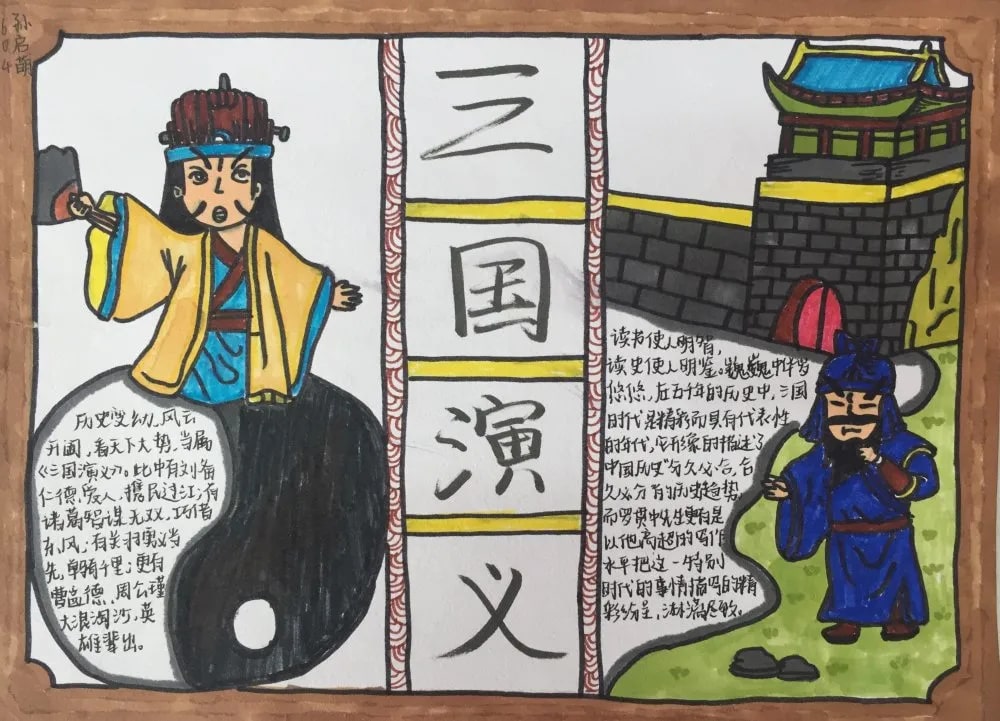 孙启萌
604
三
国
演
义
历史变幻,风云
开阖,看天下大势,当属
《三国演义》。此中有刘备
仁德爱人,携民过江;有
诸葛智谋无双,巧借
东风;有关羽勇义当
先,单骑千里;更有
曹孟德,周公瑾
大浪淘沙,英
雄辈出。
读书使人明智,
读史使人明鉴。巍巍中华
悠悠,在五千年的历史中,三国
时代是精彩而具有代表性
的年代,它形象的描述了
中国历史“分久必合,合
久必分”的历史趋势,
而罗贯中先生更是
以他高超的写作
水平把这一特别
时代的事情描写的精
彩纷呈,淋漓尽致。